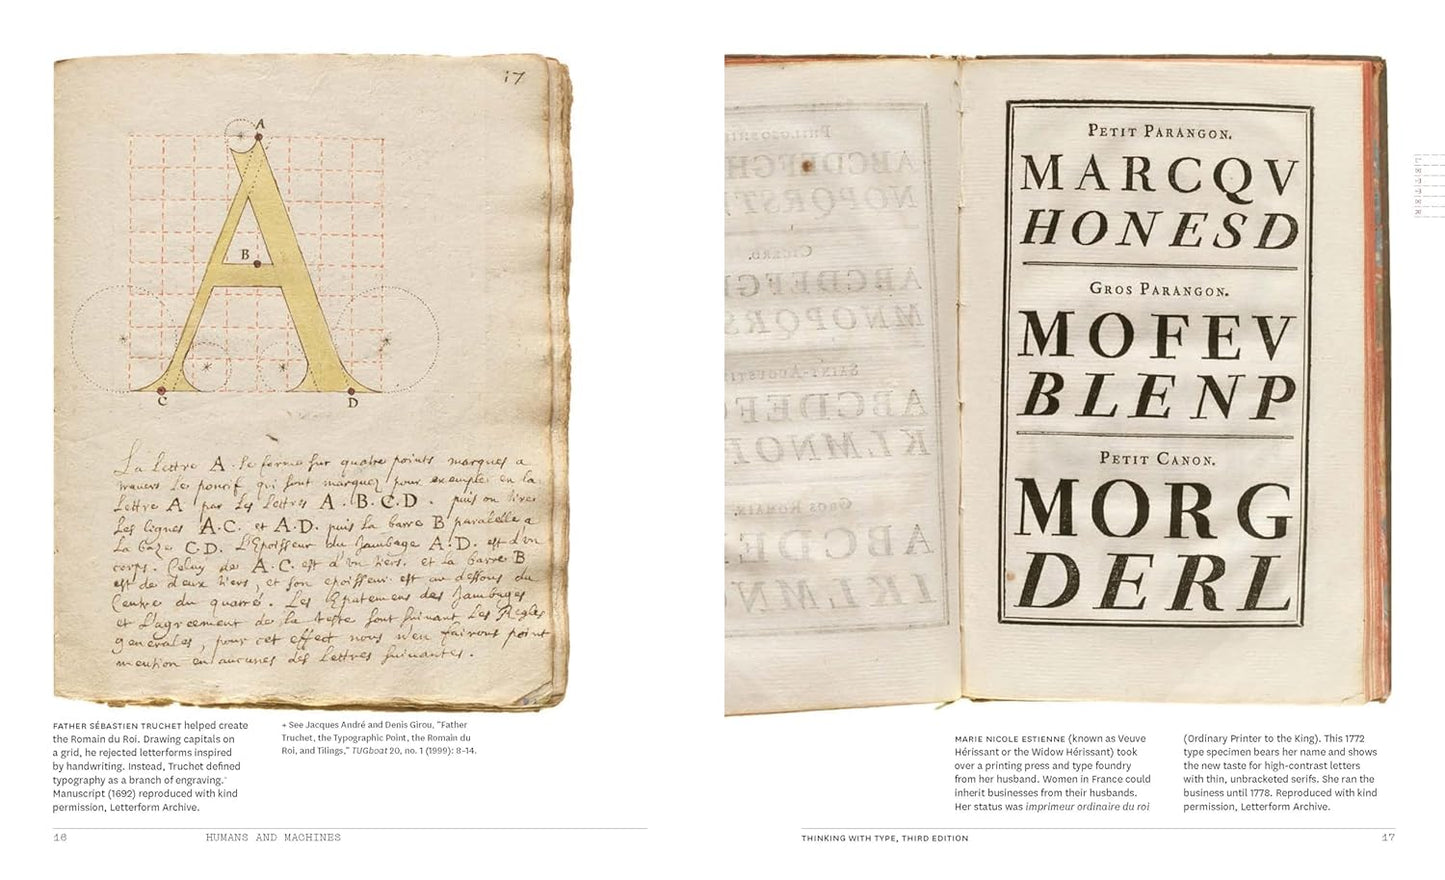 17
A
B
C
D
La lettre A. se forme sur quatre points marques a
travers le poncif qui sont marquez pour exemple en la
lettre A par les lettres A. B. C. D. puis on tire
les lignes A.C. et A.D. puis la barre B paralelle a
la baze C.D. L'Epoisseur du Jambage A.D. est d'un
corps. Celuy de A.C. est d'un tiers. et la barre B
est de deux tiers, et son epoisseur est au dessous du
Centre du quarré. Les Epatemens des Jambages
et L'agreement de la teste sont suivant Les Regles
generales, pour cet effect nous n'en fairons point
mention en aucunes des lettres suivantes.
FATHER SÉBASTIEN TRUCHET helped create
the Romain du Roi. Drawing capitals on
a grid, he rejected letterforms inspired
by handwriting. Instead, Truchet defined
typography as a branch of engraving.+
Manuscript (1692) reproduced with kind
permission, Letterform Archive.
+ See Jacques André and Denis Girou, "Father
Truchet, the Typographic Point, the Romain du
Roi, and Tilings," TUGboat 20, no. 1 (1999): 8–14.
16 HUMANS AND MACHINES
PETIT PARANGON.
MARCQV
HONESD
GROS PARANGON.
MOFEV
BLENP
PETIT CANON.
MORG
DERL
LETTER
MARIE NICOLE ESTIENNE (known as Veuve
Hérissant or the Widow Hérissant) took
over a printing press and type foundry
from her husband. Women in France could
inherit businesses from their husbands.
Her status was imprimeur ordinaire du roi
(Ordinary Printer to the King). This 1772
type specimen bears her name and shows
the new taste for high-contrast letters
with thin, unbracketed serifs. She ran the
business until 1778. Reproduced with kind
permission, Letterform Archive.
THINKING WITH TYPE, THIRD EDITION 17